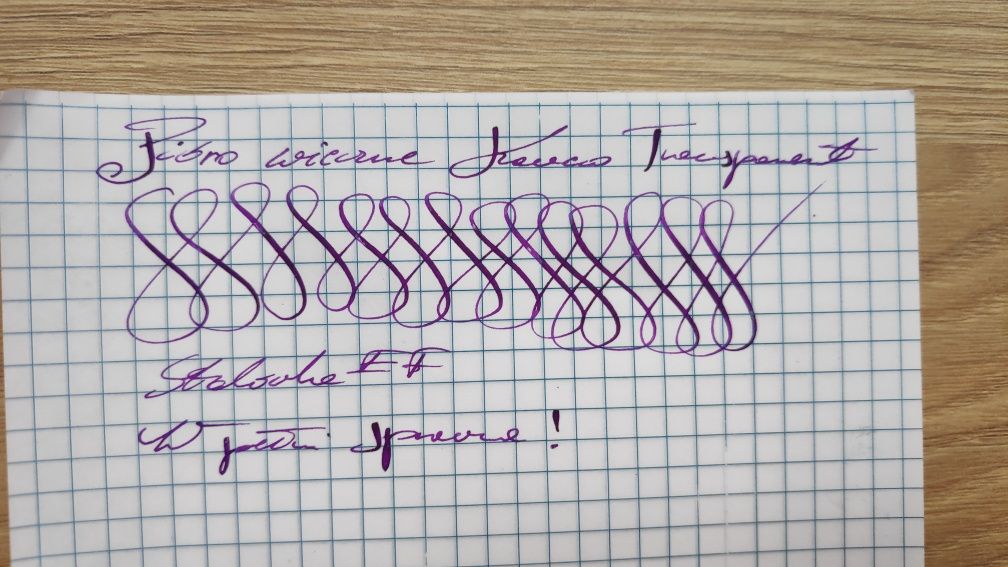 Pióro wieczne Kaweco Transparent
Stalówka EF
W pełni sprawne!